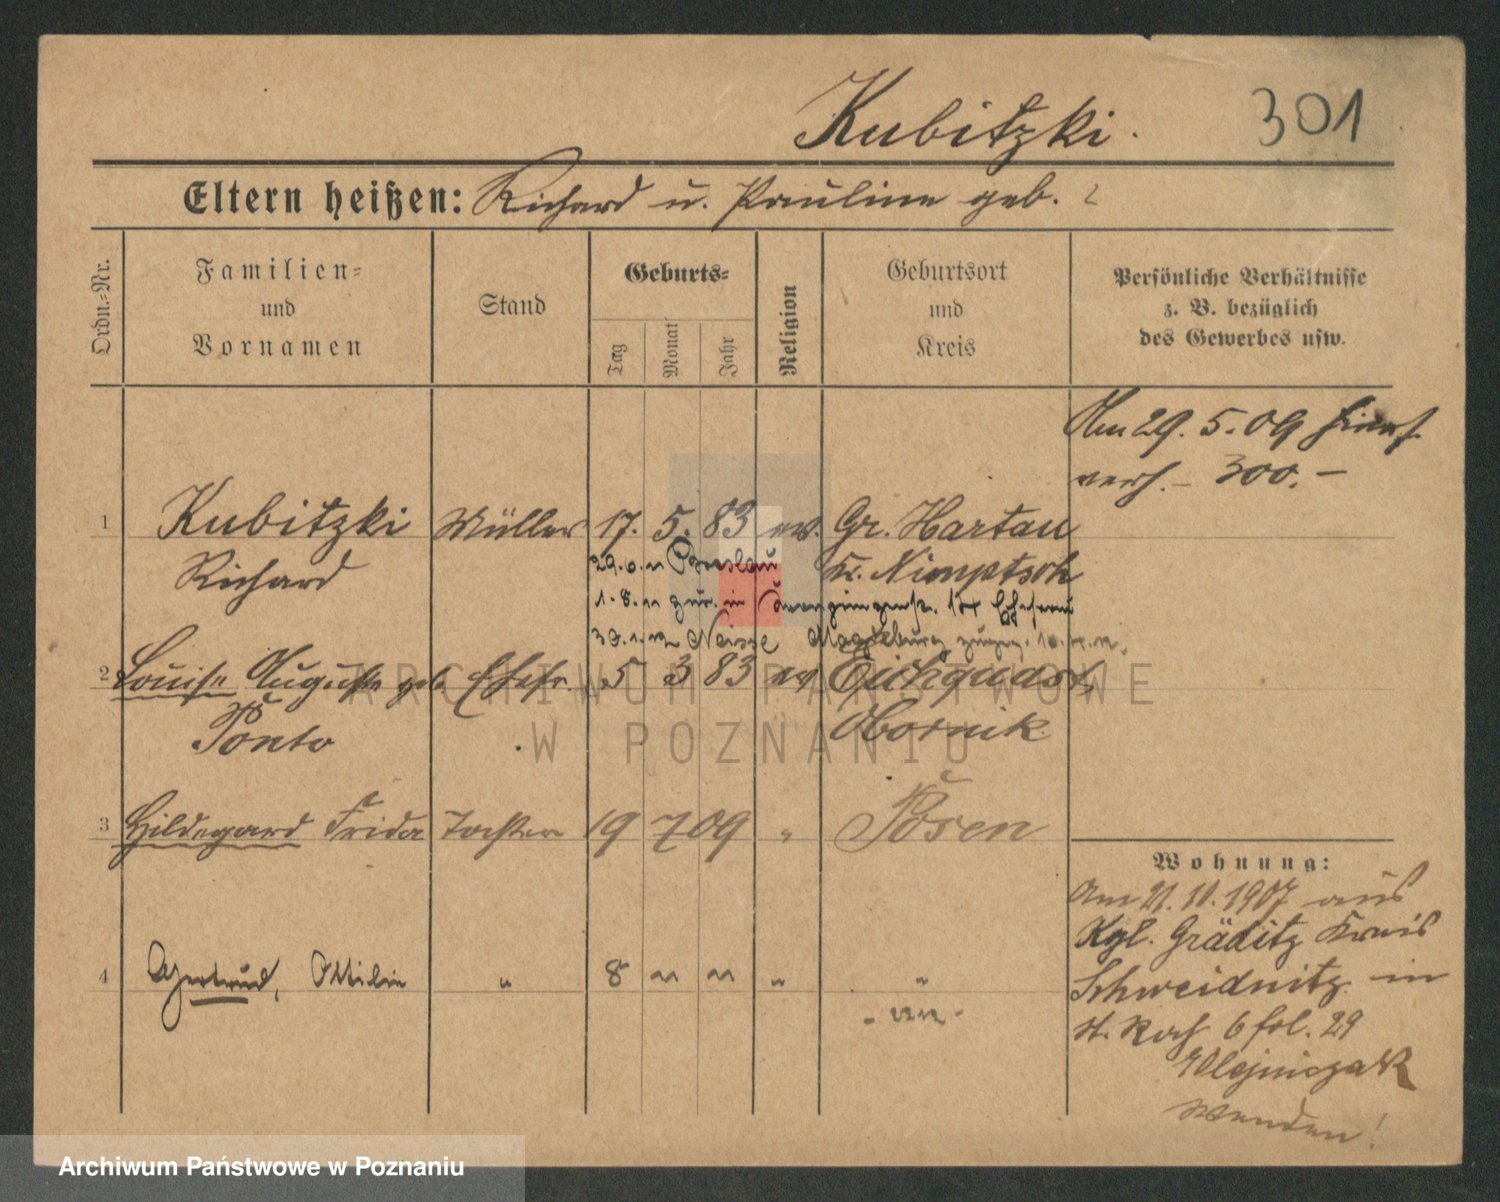 Kubitzki.
301
Eltern heißen: Richard u. Pauline geb. ?
Ordn.-Nr.
Familien-
und
Vornamen
Stand
Geburts-
Tag
Monat
Jahr
Religion
Geburtsort
und
Kreis
Persönliche Verhältnisse
z. B. bezüglich
des Gewerbes usw.
Am 29. 5. 09 hier
verh. – 300. –
1 Kubitzki Müller 17. 5. 83 ev. Gr. Hartau
Richard Kr. Nimptsch
29. 6. 11 Breslau
1. 8. 11 zur. in
30. 1. 12 Neisse Magdeburg
2 Louise Auguste geb. Ehefr. 5 3 83 ev Eichquast,
Ponto Obornik
3 Hildegard Frida Tochter 19 7 09 " Posen
4 Gertrud, Ottilie " 8 11 11 " "
Wohnung:
Am 21. 10. 1907 aus
Kgl. Gräditz Kreis
Schweidnitz in
St. Roch 6 fol. 29
Olejniszak
Wenden!
ARCHIWUM PAŃSTWOWE
W POZNANIU
Archiwum Państwowe w Poznaniu